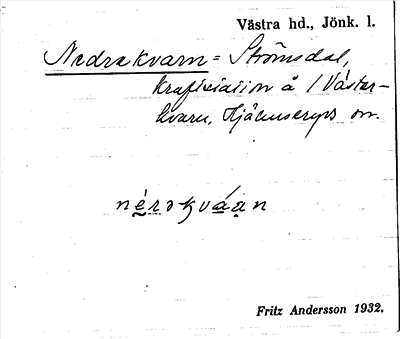 Västra hd., Jönk. l.
Nedrekvarn = Strömsdal,
kraftstation å 1 Väster-
kvarn, Hjälmseryds sn.
nérəkváan
Fritz Andersson 1932.